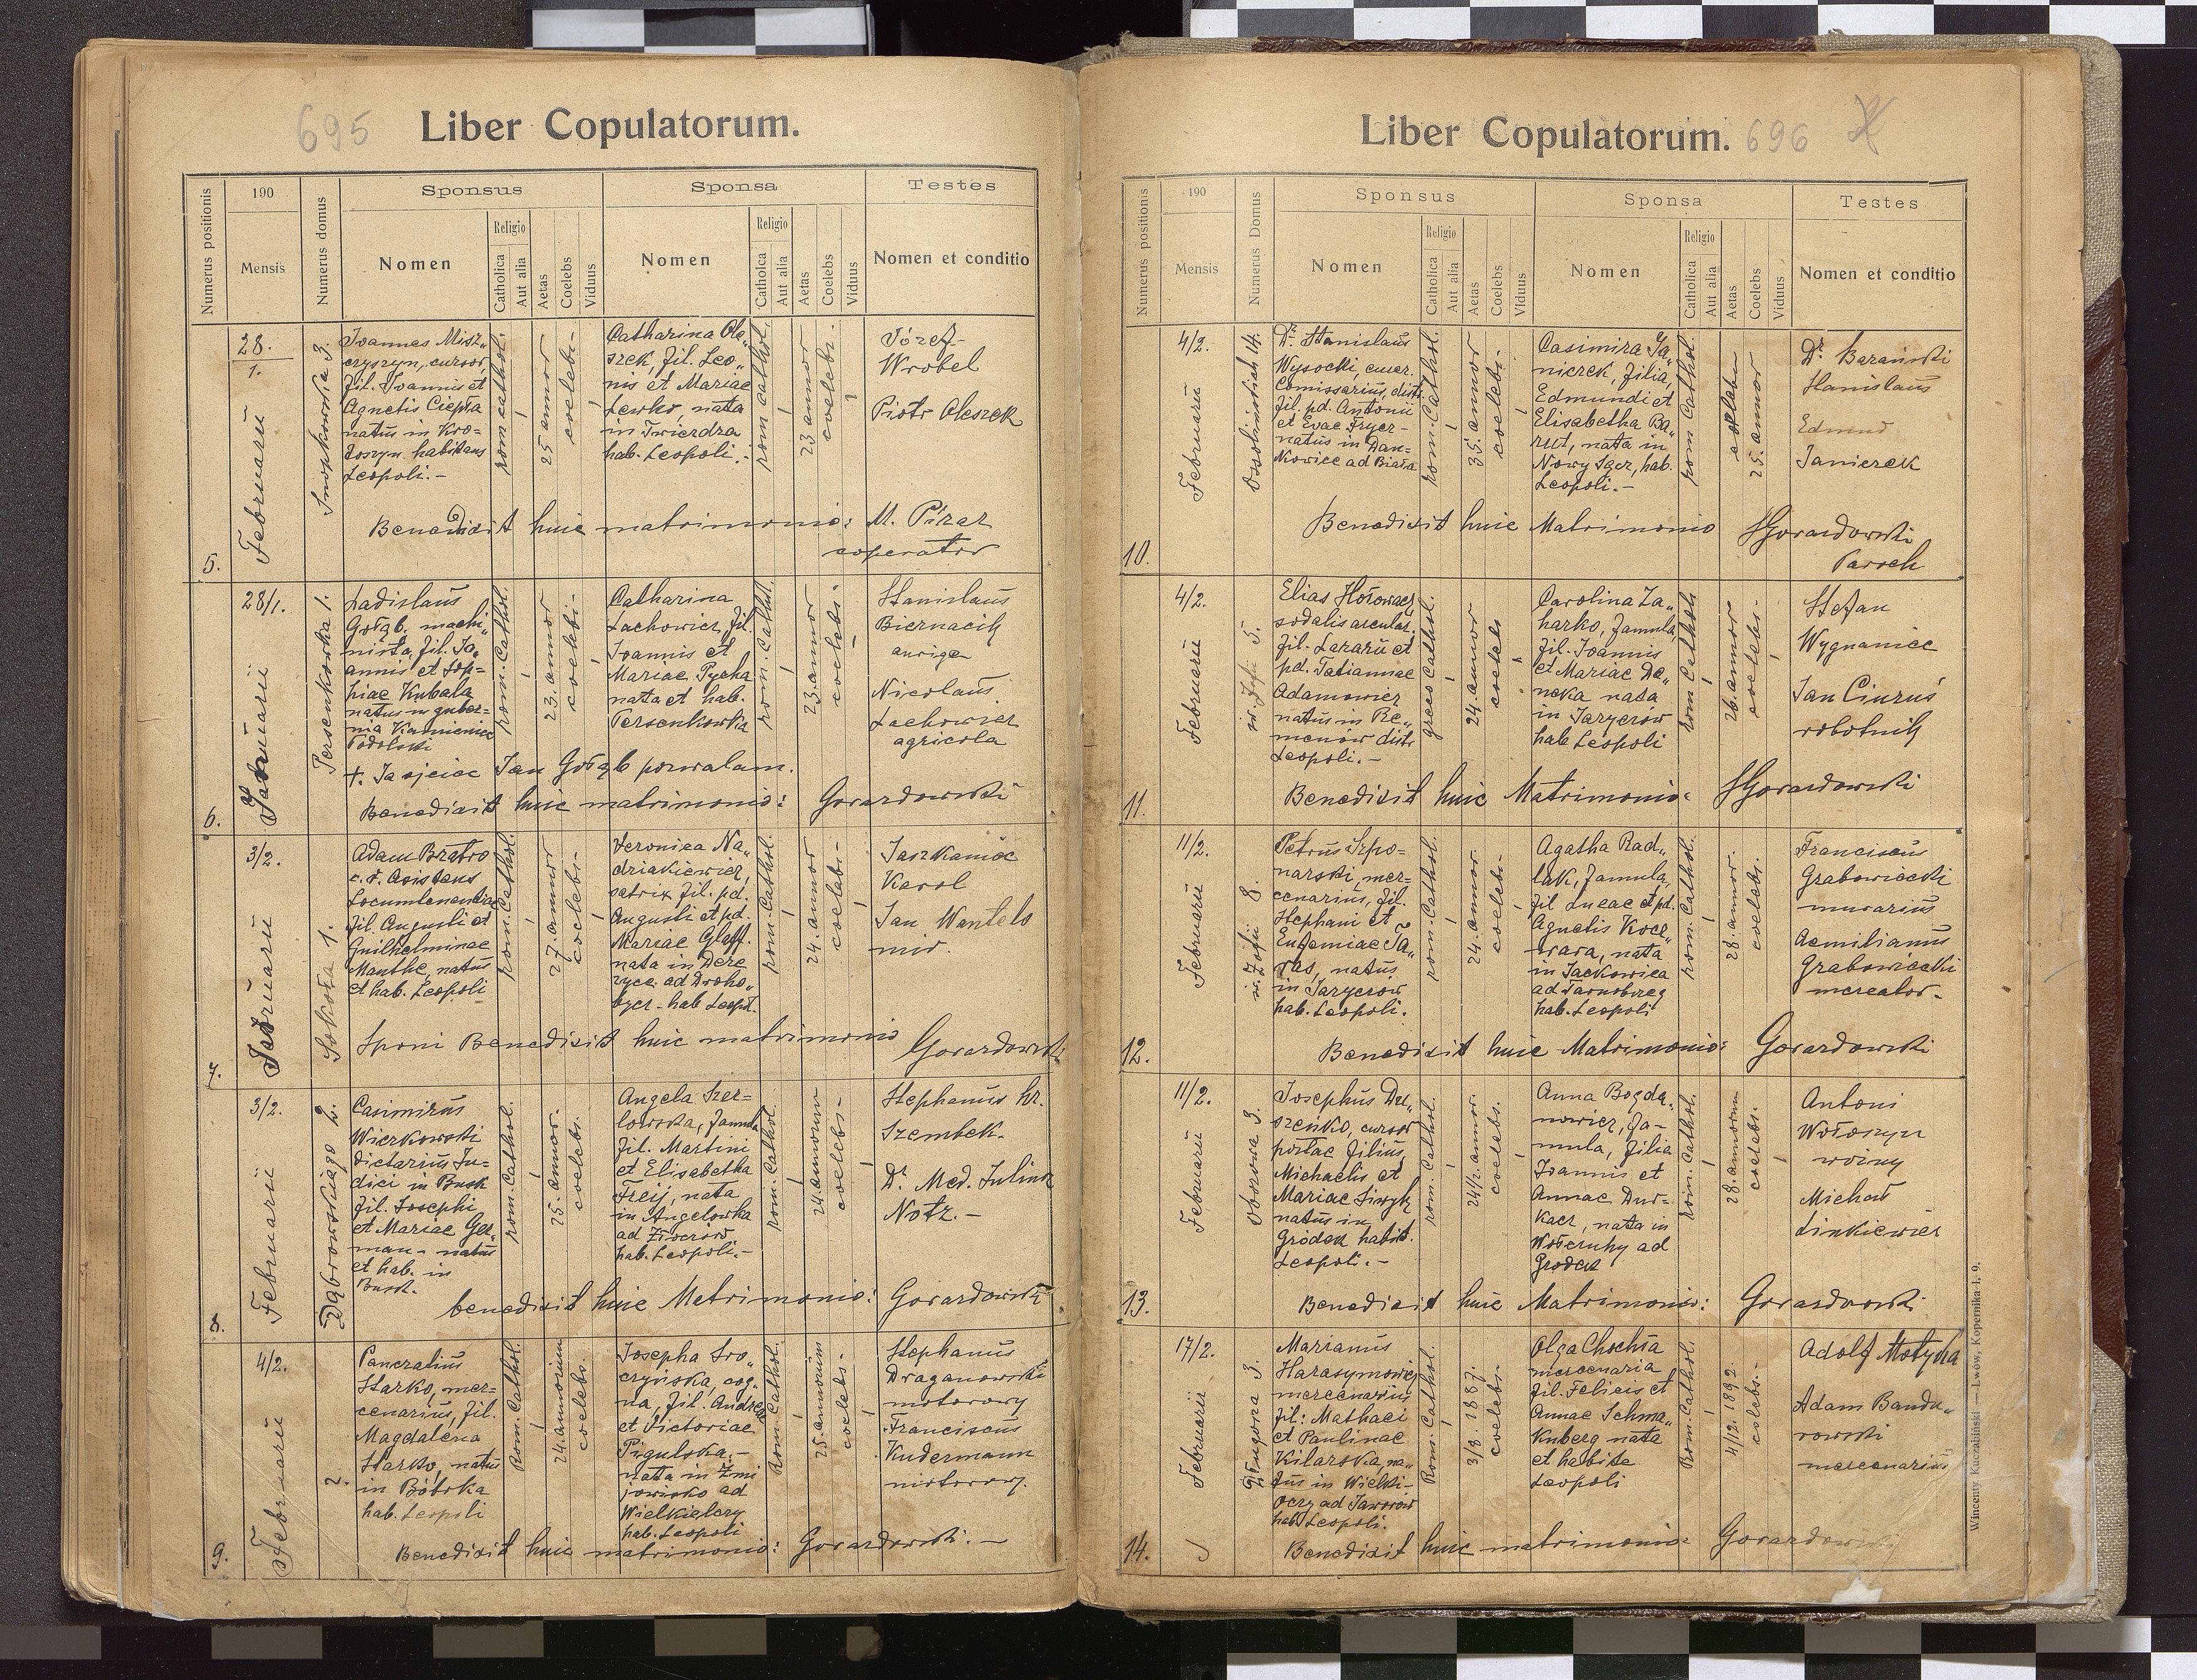 695
Liber Copulatorum.
Numerus positionis
190
Mensis
Numerus domus
Sponsus
Nomen
Religio
Catholica
Aut alia
Aetas
Coelebs
Viduus
Sponsa
Nomen
Religio
Catholica
Aut alia
Aetas
Coelebs
Viduus
Testes
Nomen et conditio
5.
28.
1.
Februarii
Snopkowska 3.
Joannes Misz„
czyszyn, cursor,
fil. Joannis et
Agnetis Ciepła
natus in Kro=
toszyn habitans
Leopoli.-
rom. cathol.
25 annor
coelebs-
Catharina Ole„
szek, fil. Leo„
nis et Mariae
Lewko, nata
in Twierdza
hab. Leopoli.-
rom cathol.
23 annor
coelebs.
Józef
Wrobel
Piotr Oleszek
Benedixit huic matrimonio: M. Pirar
cooperator
6.
28/1.
Januarii
Persenkowska 1.
Ladislaus
Gołąb, machi„
nista, fil. Jo„
annis et Sop=
hiae Kubala
natus in guber=
nia Kamieniec
Podolski
rom. Cathol.
23. annor
coelebs-
Catharina
Lachowicz fil.
Joannis et
Mariae Pycha
nata et hab.
Persenkowka
rom. Cathol.
23. annor
coelebs.
Stanislaus
Biernacik
auriga
Nicolaus
Lachowicz
agricola
+. Ja ojciec Jan Gołąb pozwalam.
Benedixit huic matrimonio: Gorazdowski
7.
3/2.
Februarii
Sokoła 1.
Adam Bratro
c. r. Asistens
Locumtenentiae
fil. Augusti et
Guilhelminae
Manthe, natus
et hab. Leopoli
rom. Cathol.
27. annor
coelebs-
Veronica Na„
driakiewicz,
satrix fil. pd.
Augusti et pd.
Mariae Glaff.
nata in Dere
życe ad Droho„
bycz- hab Leopol.
rom. Cathol.
24. annor
coelebs-
Jaszkanioc
Karol
Jan Wantelo
mir.
Sponi Benedixit huic matrimonio Gorazdowski
8.
3/2.
Februarii
Dąbrowskiego 2.
Casimirus
Wierkowski
dietarius Ju=
dici in Busk
fil. Josephi
et Mariae Ger„
man- natus
et hab. in
Busk.
rom. Cathol.
25. annor.
coelebs.
Angela Szer=
lowska, famula
fil. Martini
et Elisabetha
Freij, nata
in Angelowka
ad
hab. Leopoli.-
rom. Cathol.
24. annorum
coelebs-
Stephanus hr.
Szembek.
Dr. Med. Julius
Notz.-
benedixit huic Matrimonio: Gorazdowski
9.
4/2.
Februarii
2.
Pancratius
Starko, mer=
cenarius, fil.
Magdalena
Starko, natus
in Bóbrka
hab. Leopoli
Rom. Cathol.
24. annorum
coelebs.
Josepha Sro„
czyńska, coq„
na, fil. Andreae
et Victoriae
Pigulska.-
nata in Żmi
jowisko ad
Wielkie Oczy
hab. Leopoli
Rom. Cathol.
25. annorum
coelebs.-
Stephanus
Draganowski
motorowy
Franciscus
Kudermann
motorowy.
Benedixit huic matrimonio: Gorazdowski.-
Liber Copulatorum. 696
Numerus positionis
190
Mensis
Numerus Domus
Sponsus
Nomen
Religio
Catholica
Aut alia
Aetas
Coelebs
Viduus
Sponsa
Nomen
Religio
Catholica
Aut alia
Aetas
Coelebs
Viduus
Testes
Nomen et conditio
10.
4/2.
Februarii
Ossolinskich 14.
Dr. Stanislaus
Wysocki, emer.
Comissarius, distr.
fil. pd. Antonii
et Evae Fryer-
natus in Dan=
kowice ad Biała
rom. Cathol.
35. annor
coelebs-
Casimira Ja„
nierek, filia,
Edmundi et
Elisabetha Ba„
rut, nata in
Nowy Sącz, hab.
Leopoli.-
rom Cathol
coelebs
25. annor
Dr. Barański
Stanislaus
Edmund
Janierek
Benedixit huic Matrimonio Gorazdowski
Paroch
11.
4/2.
Februarii
św. Zofii 5.
Elias Hołowacz
sodalis arcular.
fil. Lazarii et
pd. Tatiannae
Adamowicz
natus in Re„
menów distr.
Leopoli.-
greco Cathol.
24. annor
coelebs
Carolina Za„
harko, famula,
fil. Joannis
et Mariae De„
neka nata
in Jaryczów
hab Leopoli
rom Cathol.
26. annor
coelebs-
Stefan
Wygnaniec
Jan Ciuruś
robotnik
Benedixit huic Matrimonio: Gorazdowski
12.
11/2.
Februarii
św. Zofii 8.
Petrus Szpo=
narski, mer=
cenarius, fil.
Stephani et
Eufemiae Ta„
ras, natus
in Jaryczow
hab. Leopoli.
rom. Cathol.
24. annor.
coelebs-
Agatha Rad„
lak, famula,
fil Lucae et pd.
Agnetis Koce„
wara, nata
in Jackowica
ad Tarnobrzeg
hab. Leopoli
rom. Cathol.
28. annor.
coelebs.
Franciscus
Grabowiecki
murarius
Aemilianus
Grabowiecki
mercator-
Benedixit huic Matrimonio: Gorazdowski
13.
11/2.
Februarii
Oborowa 3.
Josephus Du„
szenko, cursor
portae filius,
Michaelis et
Mariae Siwyk
natus in
Gródek habit.
Leopoli.-
rom. Cathol.
24 1/2. annor.
coelebs.
Anna Bogda„
nowicz, fa-
mula, filia
Joannis et
Annae Dur-
kacz, nata in
Wołczuhy ad
Grodek
rom. Cathol.
28. annorum
coelebs.
Antoni
Wołoszyn
woźny
Michał
Linkiewicz
Benedixit huic Matrimonio: Gorazdowski
14.
17/2.
Februarii
Długosza 3.
Marianus
Harasymowicz
mercenarius
fil: Mathaei
et Paulinae
Kilarska, na„
tus in Wielki-
oczy ad Jaworow
hab Leopoli.
Rom. Cathol.
3/8. 1887.
coelebs-
Olga Chochla
mercenaria
fil. Felicis et
Annae Schma„
kuberg nata
et habite
Leopoli
Rom. Cathol.
4/12. 1892.
coelebs.-
Adolf Motyka
Adam Bandu„
rowski
mercenarius
Benedixit huic matrimonio: Gorazdowski
Wincenty Kuczabiński — Lwów, Kopernika l. 9.